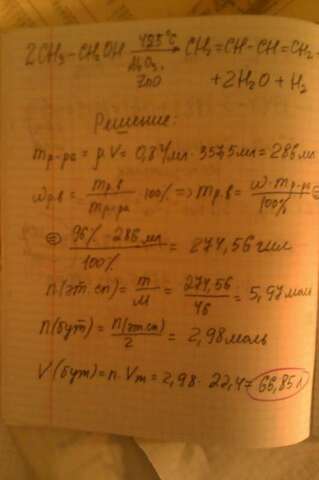 2CH3-CH2OH 425°C CH2=CH-CH=CH2 +
Al2O3, ZnO
+2H2O + H2
Решение:
mр-ра = ρ·V = 0,8 г/мл · 357,5 мл = 286 мл
ωр.в = mр.в / mр-ра · 100% => mр.в = ω·mр-ра / 100% =
= 96% · 286 мл / 100% = 274,56 г/мл
n(эт.сп) = m/M = 274,56/46 = 5,97 моль
n(бут) = n(эт.сп)/2 = 2,98 моль
V(бут) = n·Vm = 2,98 · 22,4 = 66,85 л